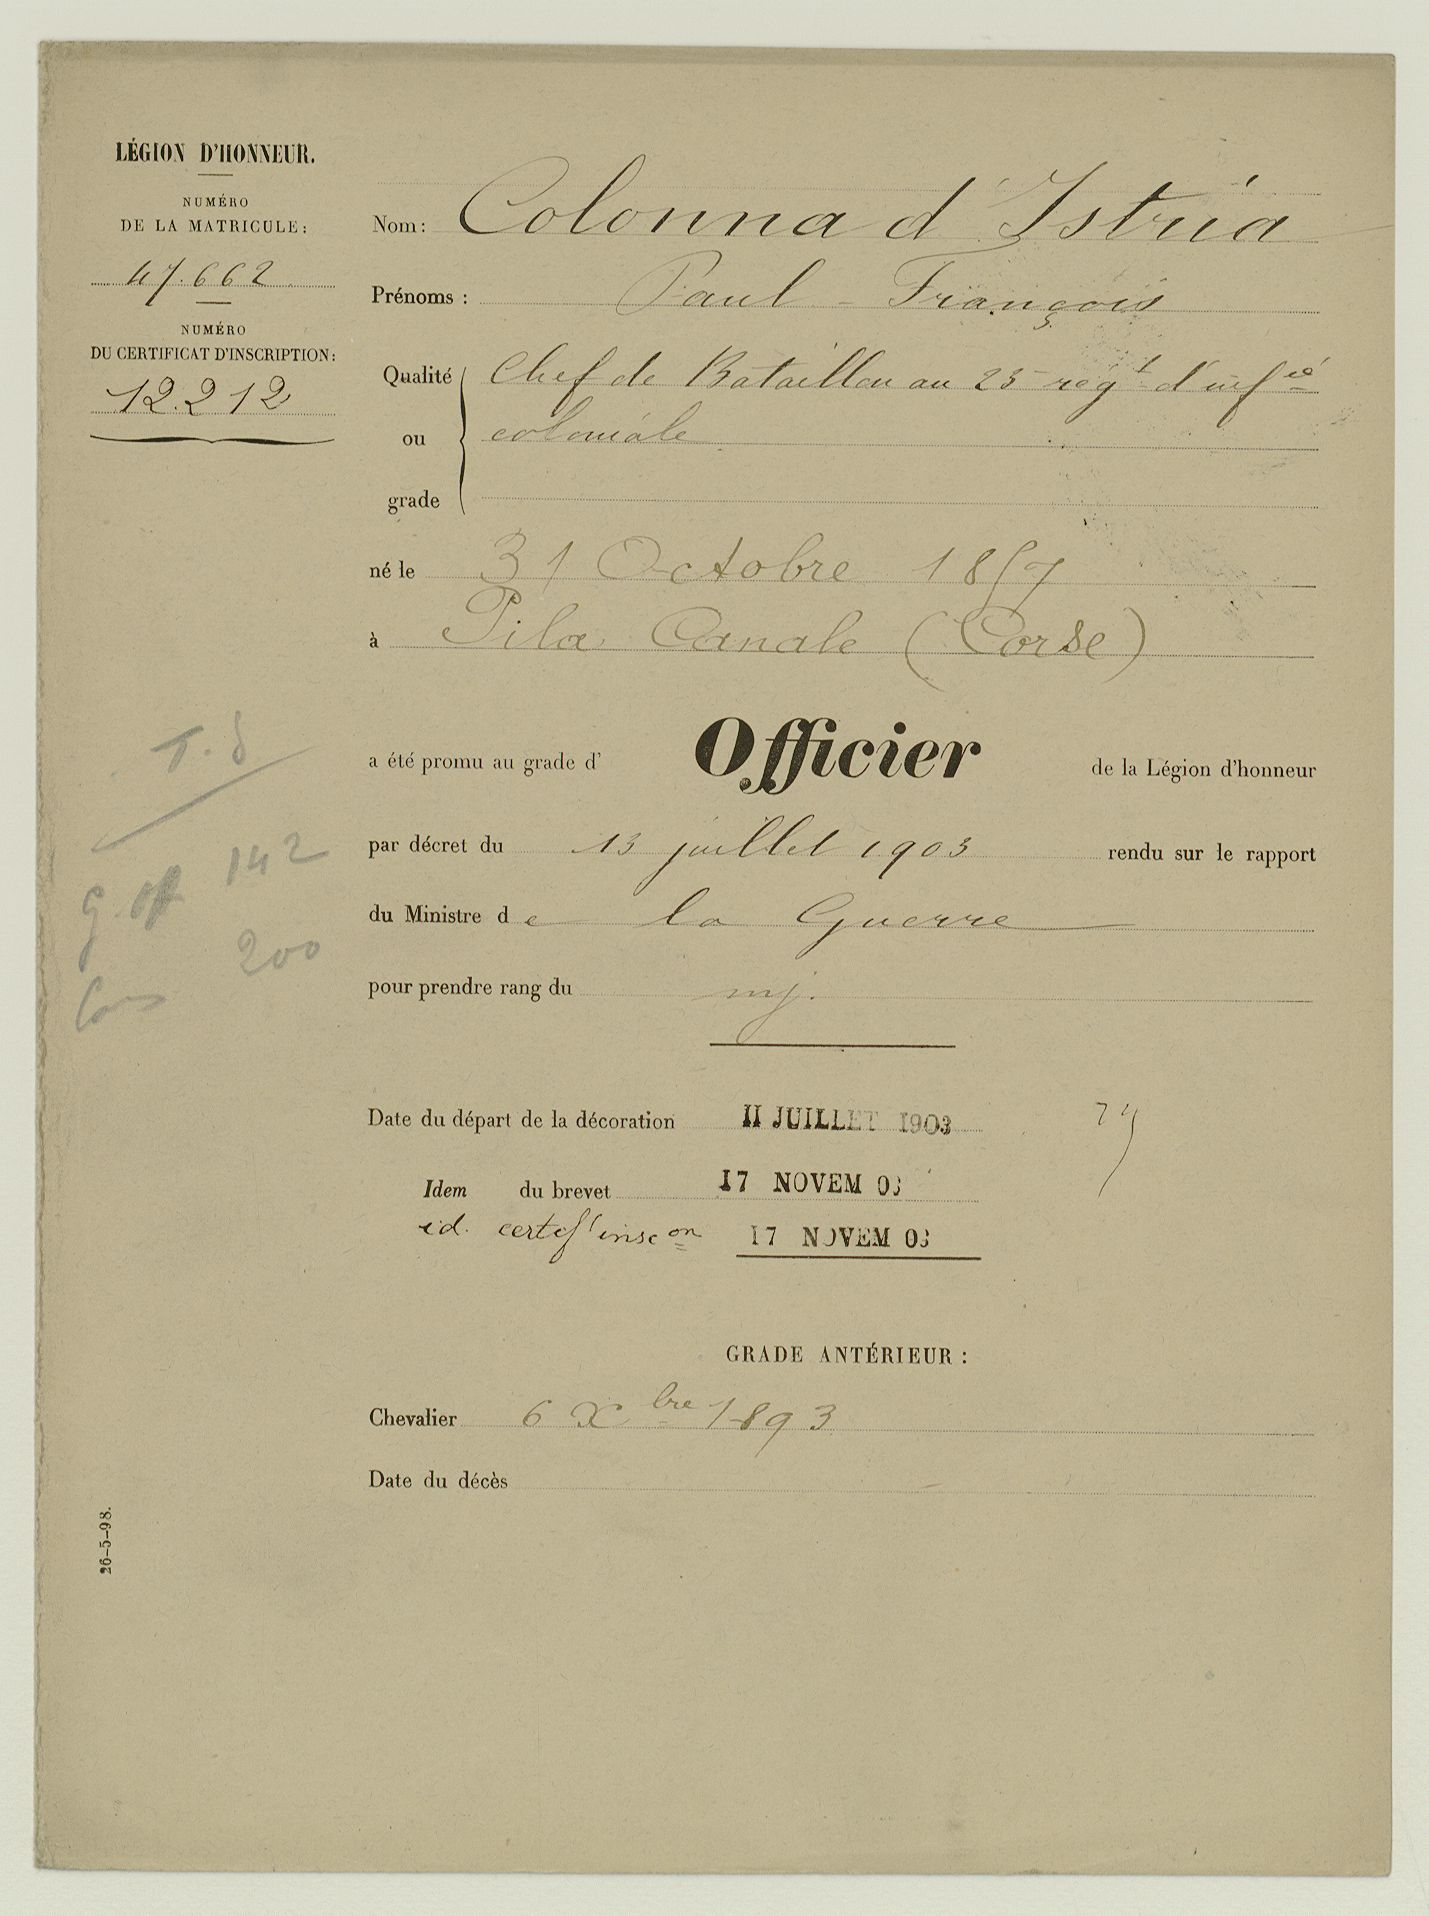 LÉGION D'HONNEUR.
NUMÉRO
DE LA MATRICULE:
47.662
NUMÉRO
DU CERTIFICAT D'INSCRIPTION:
12.212
Nom: Colonna d'Istria
Prénoms : Paul - François
Qualité Chef de Bataillon au 23 régt d'infie
ou coloniale
grade
né le 31 Octobre 1857
à Pila Canale (Corse)
a été promu au grade d' Officier de la Légion d'honneur
par décret du 13 juillet 1903 rendu sur le rapport
du Ministre de la Guerre
pour prendre rang du mj.
T. S
G. Off 142
200
Date du départ de la décoration 11 JUILLET 1903
Idem du brevet 17 NOVEM 03
id. certif d'inscon 17 NOVEM 03
GRADE ANTÉRIEUR :
Chevalier 6 Xbre 1893
Date du décès
26-5-98.